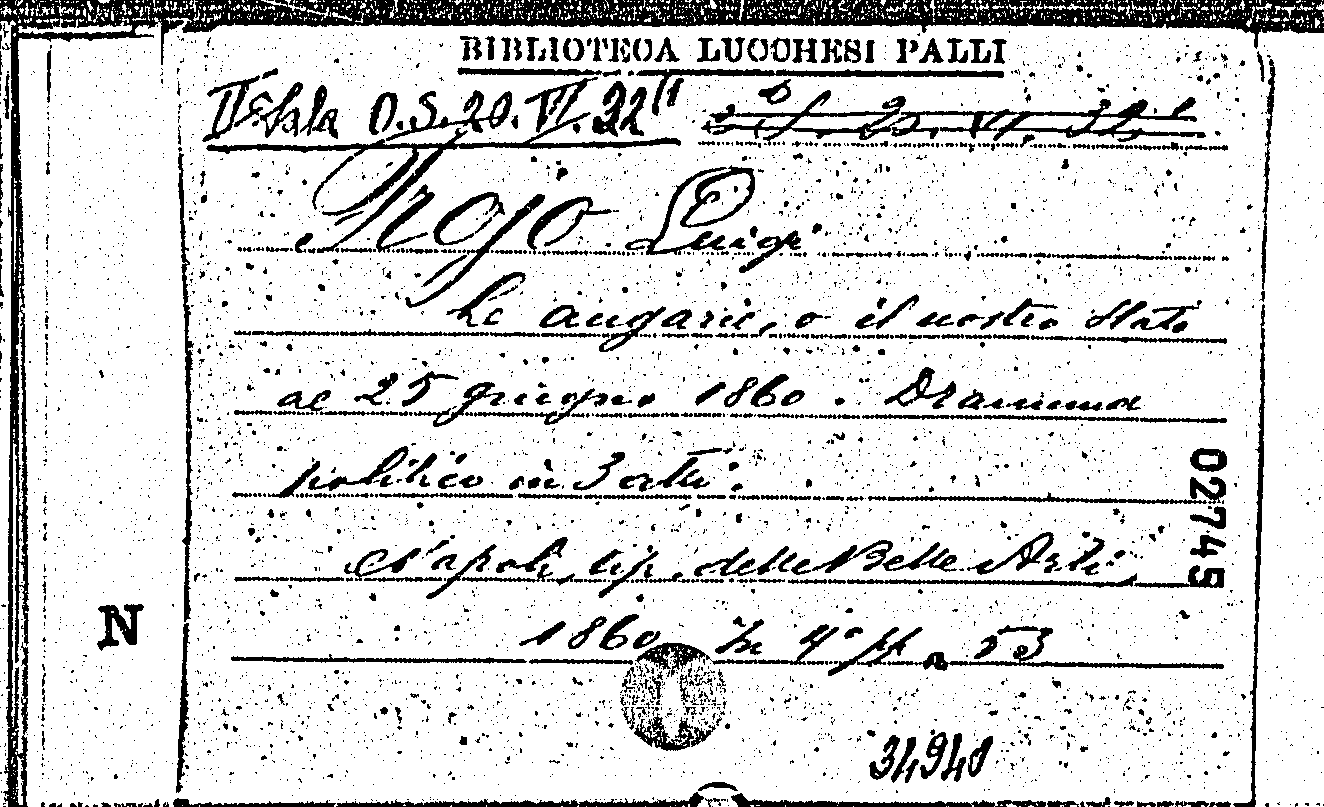 BIBLIOTECA LUCCHESI PALLI
II Sala O.S. 20. VI. 32
Trojo Luigi
Le angarie, o il nostro Stato
al 25 giugno 1860. Dramma
politico in 3 atti.
02745
Napoli, tip. delle Belle Arti,
1860 In 4° pp. 53
N
34940